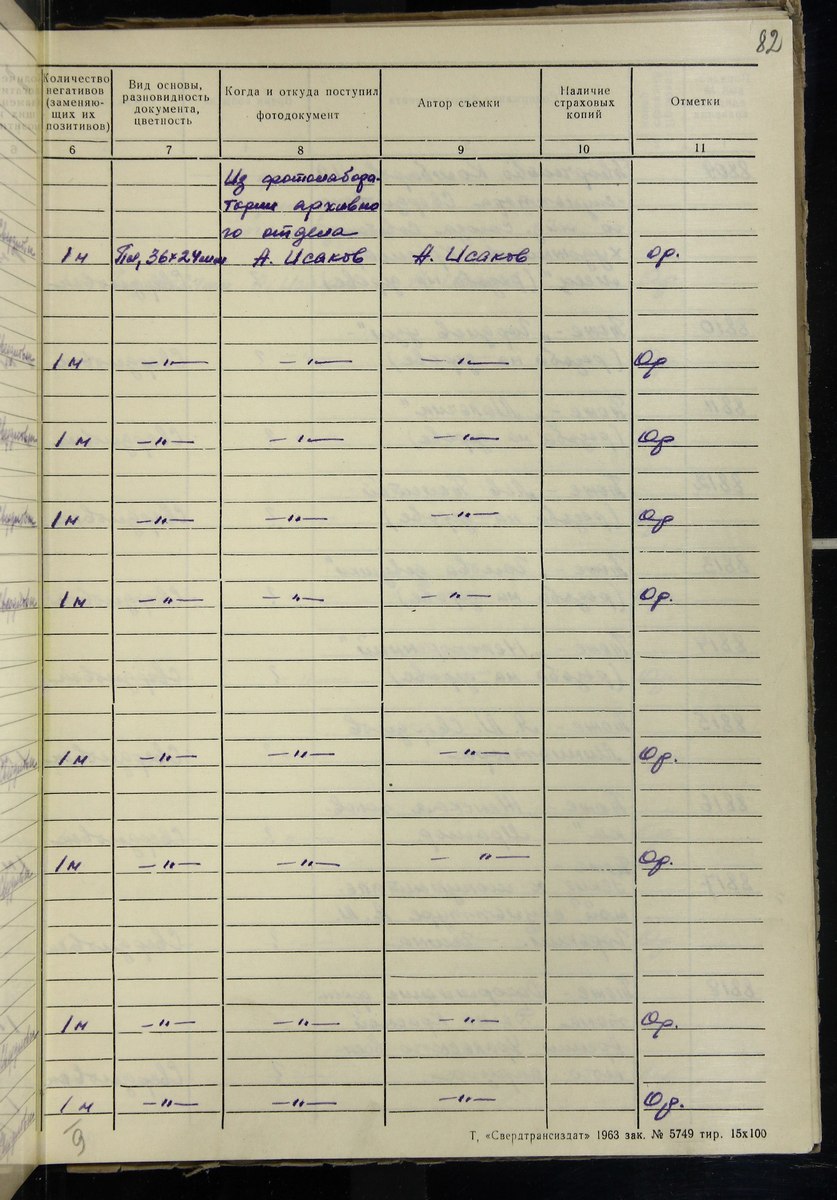 82
Количество
негативов
(заменяю-
щих их
позитивов)
Вид основы,
разновидность
документа,
цветность
Когда и откуда поступил
фотодокумент
Автор съемки
Наличие
страховых
копий
Отметки
6 7 8 9 10 11
Из фотолабора-
тории архивно-
го отдела
1 н Пл, 36×24мм А. Исаков А. Исаков Ор.
1 н —"— —"— —"— Ор
1 н —"— —"— —"— Ор
1 н —"— —"— —"— Ор
1 н —"— —"— —"— Ор.
1 н —"— —"— —"— Ор.
1 н —"— —"— —"— Ор.
1 н —"— —"— —"— Ор.
1 н —"— —"— —"— Ор.
9
Т. «Свердтрансиздат» 1963 зак. № 5749 тир. 15х100